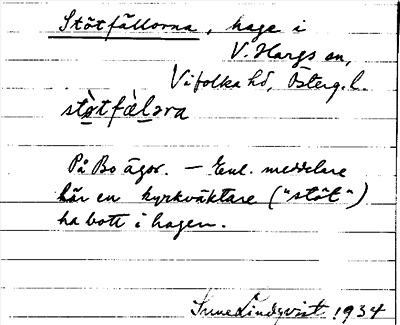 Stötfållorna, hage i
V. Hargs sn,
Vifolka hd, Österg. l.
stö̀tfàlₒra
På Bo ägor. — Enl. meddelare
här en kyrkväktare ("stöt")
ha bott i hagen.
Sune Lindqvist 1934